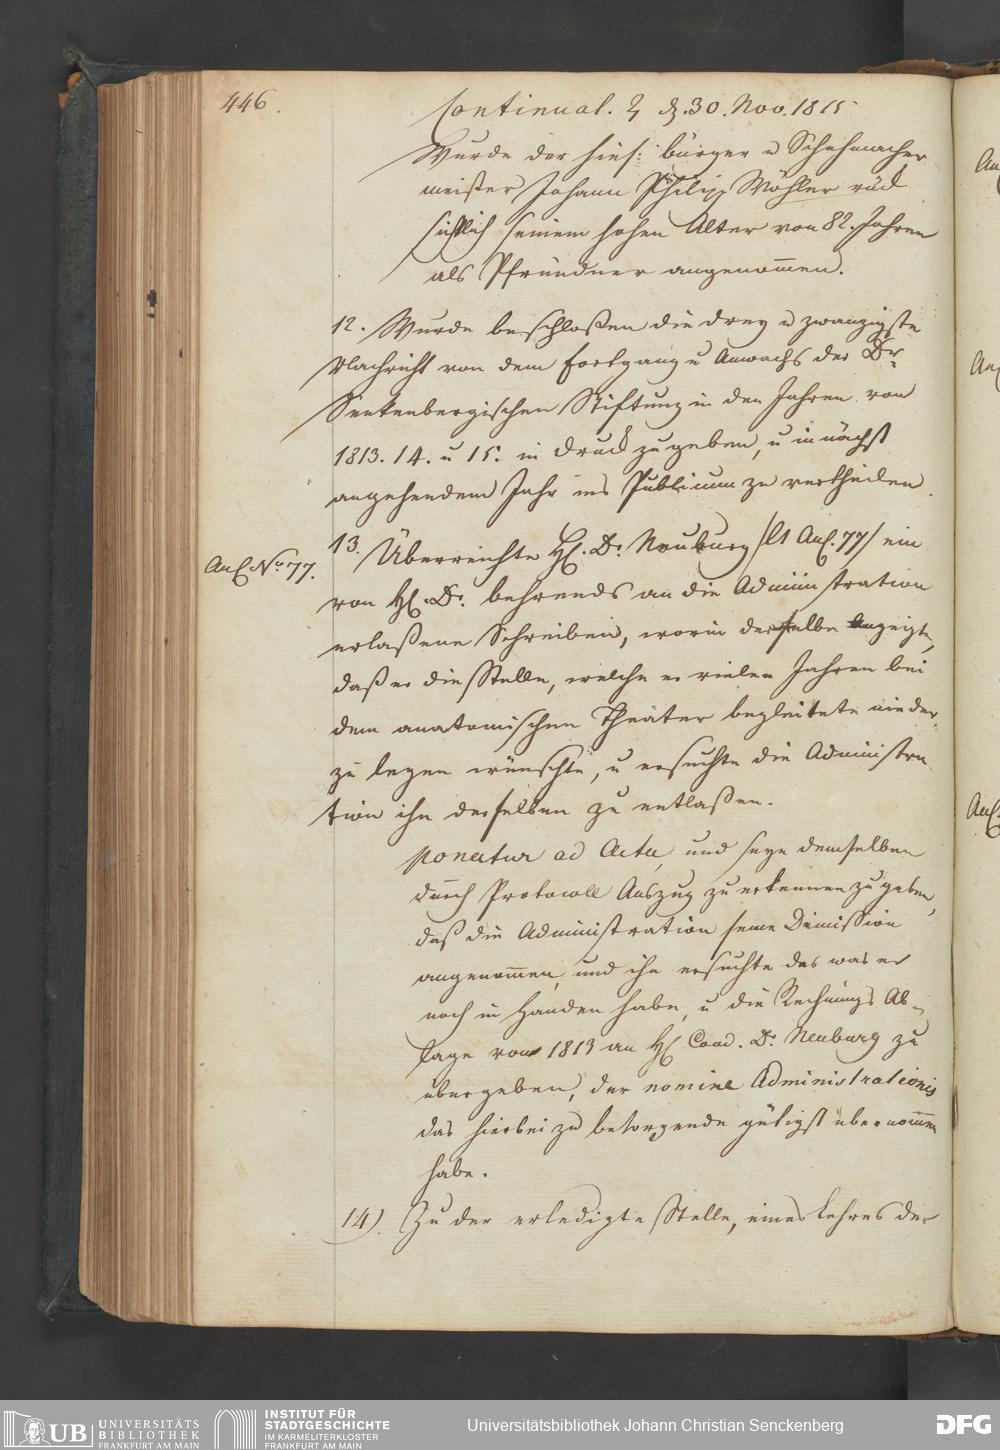 446.
Continuat. ♃ d. 30. Nov. 1815
Wurde der hies: bürger u Schuhmacher
meister Johann Philipp Wöhler rück
sichtlich seinem hohen Alter von 82. Jahren
als Pfründner angenom̅en.
12. Wurde beschloßen die drey u zwanzigste
Nachricht von dem Fortgang u Anwachs der Dr.
Senkenbergischen Stiftung in den Jahren von
1813. 14. u 15. in Druck zu geben, u in nächst
angehendem Jahr ins Publicum zu vertheilen.
Anl. No 77.
13. Überreichte H. Dr. Neuburg /lt Anl. 77/ ein
von H. Dr. behrends an die Administration
erlaßene Schreiben, worin derselbe Anzeigte,
daß er die Stelle, welche er vielen Jahren bei
dem anatomischen Theater begleitete nieder,
zu legen wünschte, u ersuchte die Administra
tion ihn derselben zu entlaßen.
ponatur ad Acta, und seye demselben
durch Protocoll Auszug zu erkennen zu geben,
daß die Administration seine Dimission
angenom̅en, und ihn ersuchte das was er
noch in Handen habe, u die Rechnungs Ab-
lage von 1813 an H. Coad. Dr. Neuburg zu
übergeben, der nomine Administrationis
das hierbei zu besorgende gütigst übernom̅en
habe.
14). Zu der erledigte Stelle, eines Lehrers der
UB UNIVERSITÄTS
BIBLIOTHEK
FRANKFURT AM MAIN
INSTITUT FÜR
STADTGESCHICHTE
IM KARMELITERKLOSTER
FRANKFURT AM MAIN
Universitätsbibliothek Johann Christian Senckenberg
DFG